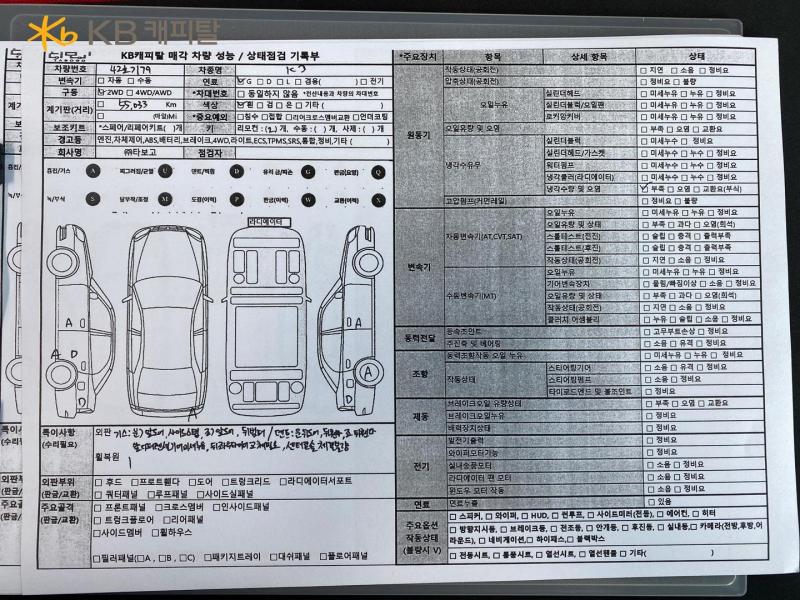 KB캐피탈
KB캐피탈 매각 차량 성능 / 상태점검 기록부
차량번호
차종명
K3
변속기 □ 자동 □ 수동
연료 G □ D □ L □ 겸용( ) □ 전기
구동 2WD □ 4WD/AWD
*차대번호 □ 동일하지 않음 *전산내용과 차량의 차대번호
계기판(거리) □ 55,033 Km
색상 흰 □ 검 □ 은 □ 기타 ( )
□ (마일)Mi
*중요예외 □ 침수 □ 접합 □ 리어크로스멤버교환 □ 언더코팅
보조키트 *스페어/리페어키트( )개
키 리모컨 : ( )개, 수동 : ( )개, 사제 : ( )개
경고등 엔진,차체제어,ABS,배터리,브레이크,4WD,라이트,ECS,TPMS,SRS,통합,정비,기타 ( )
회사명 ㈜타보고 점검자
흠집/기스 A
찌그러짐/균열 U
덴트/찍힘 D
유리 금/파손 G
판금(요망) Q
녹/부식 S
담부착/조정 M
도장(이력) P
판금(이력) W
교환(이력) X
라디에이터
A
A
D
D
A
A
A
D
특이사항
(수리필요)
외판
휠복원 1
외판부위
(판금/교환)
□ 후드 □ 프로트휀다 □ 도어 □ 트렁크리드 □ 라디에이터서포트
□ 쿼터패널 □ 루프패널 □ 사이드실패널
주요골격
(판금/교환)
□ 프론트패널 □ 크로스멤버 □ 인사이드패널
□ 트렁크플로어 □ 리어패널
□ 사이드멤버 □ 휠하우스
□ 필러패널(□A , □B , □C) □ 패키지트레이 □ 대쉬패널 □ 플로어패널
*주요장치 항목 세부 항목 상태
원동기
작동상태(공회전) □ 지연 □ 소음 □ 정비요
압축상태(공회전) □ 정비요 □ 불량
오일누유
실린더헤드 □ 미세누유 □ 누유 □ 정비요
실린더블럭/오일팬 □ 미세누유 □ 누유 □ 정비요
로커암커버 □ 미세누유 □ 누유 □ 정비요
오일유량 및 오염 □ 부족 □ 오염 □ 교환요
냉각수유무
실린더블럭 □ 미세누수 □ 정비요
실린더헤드/가스켓 □ 미세누수 □ 누수 □ 정비요
워터펌프 □ 미세누수 □ 누수 □ 정비요
냉각쿨러(라디에이터) □ 미세누수 □ 누수 □ 정비요
냉각수량 및 오염 부족 □ 오염 □ 교환요(부식)
고압펌프(커먼레일) □ 정비요 □ 불량
변속기
자동변속기(AT,CVT,SAT)
오일누유 □ 미세누유 □ 누유 □ 정비요
오일유량 및 상태 □ 부족 □ 과다 □ 오염(희석)
스톨테스트(전진) □ 슬립 □ 충격 □ 출력부족
스톨테스트(후진) □ 슬립 □ 충격 □ 출력부족
작동상태(공회전) □ 지연 □ 소음 □ 정비요
수동변속기(MT)
오일누유 □ 미세누유 □ 누유 □ 정비요
기어변속장치 □ 물림/빠짐이상 □ 소음 □ 정비요
오일유량 및 상태 □ 부족 □ 과다 □ 오염(희석)
작동상태(공회전) □ 지연 □ 소음 □ 정비요
클러치 어셈블리 □ 누유 □ 슬립 □ 소음 □ 정비요
동력전달
등속조인트 □ 고무부트손상 □ 정비요
추진축 및 베어링 □ 소음 □ 유격 □ 정비요
조향
동력조향작동 오일 누유 □ 미세누유 □ 누유 □ 정비요
작동상태
스티어링기어 □ 소음 □ 유격 □ 정비요
스티어링펌프 □ 소음 □ 정비요
타이로드엔드 및 볼조인트 □ 정비요
제동
브레이크오일 유량상태 □ 부족 □ 오염 □ 교환요
브레이크오일누유 □ 정비요
배력장치상태 □ 정비요
전기
발전기출력 □ 정비요
와이퍼모터기능 □ 정비요
실내송풍모터 □ 소음 □ 정비요
라디에이터 팬 모터 □ 소음 □ 정비요
윈도우 모터 작동 □ 소음 □ 정비요
연료 연료누출 □ 있음
주요옵션
작동상태
(불량시 V)
□ 스피커, □ 와이퍼, □ HUD, □ 썬루프, □ 사이드미러(전동), □ 에어컨, □ 히터
□ 방향지시등, □ 브레이크등, □ 전조등, □ 안개등, □ 후진등, □ 실내등,□ 카메라(전방,후방,어
라운드), □ 네비게이션, □ 하이패스,□ 블랙박스
□ 전동시트, □ 통풍시트, □ 열선시트, □ 열선핸들 □ 기타( )